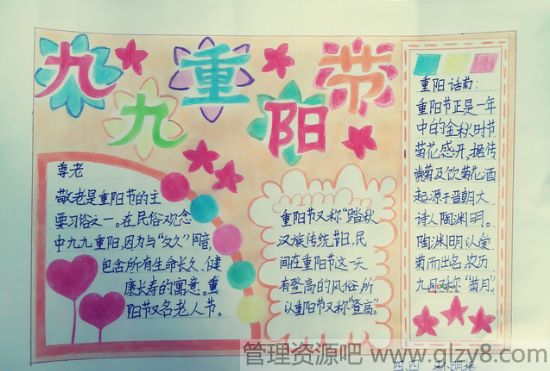 九九重阳节
尊老
敬老是重阳节的主
要习俗之一。在民俗观念
中九九重阳,因为与“久久”同音,
包含所有生命长久、健
康长寿的寓意。重
阳节又名老人节。
重阳节又称“踏秋
汉族传统节日,民
间在重阳节这一天
有登高的风俗,所
以重阳节又称“登高。
重阳话菊:
重阳节正是一年
中的金秋时节
菊花盛开,据传
赏菊及饮菊花酒
起源于晋朝大
诗人陶渊明。
陶渊明以赏
菊而出名,农历
九月又称“菊月”。
管理资源吧 www.glzy8.com